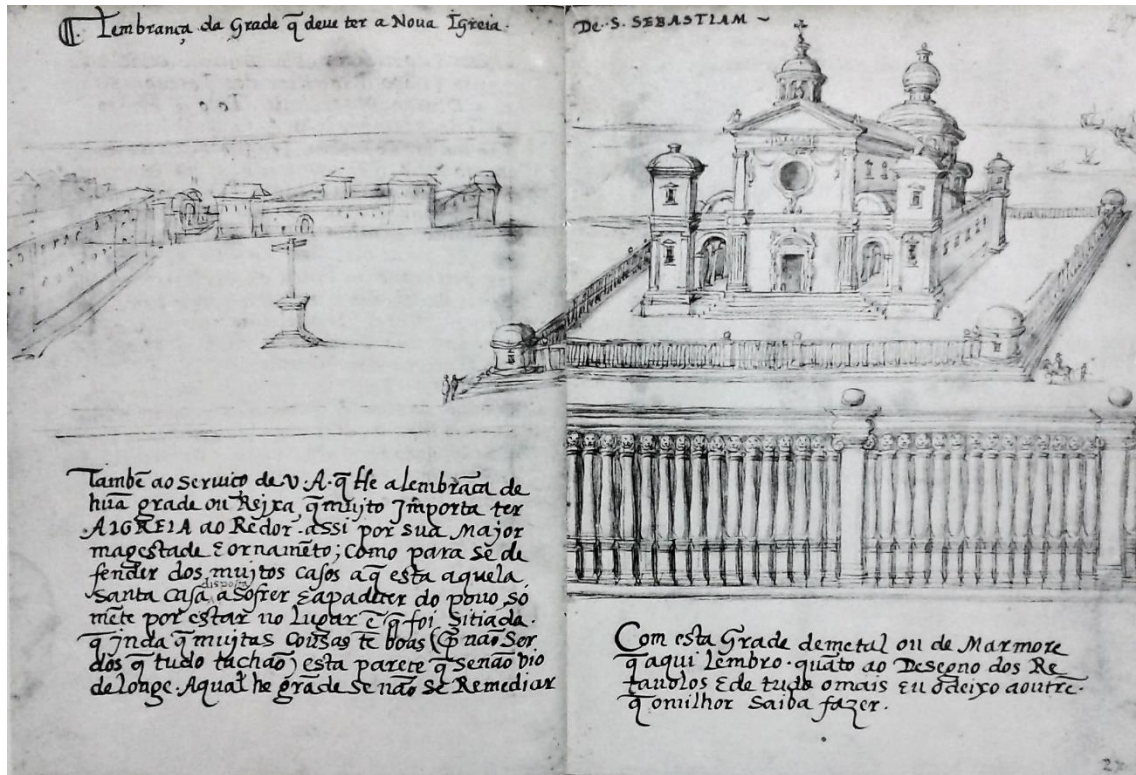 Lembrança da Grade q̃ deue ter a Noua Igreia.
De. S. SEBASTIAM ~
Tambẽ ao seruiço de V. A. q̃ he a lembrãça de
hũa grade ou Reixa q̃ mujto Jmporta ter
A IGREIA ao Redor. assi por sua Major
magestade E ornamẽto; como para se de
fender dos mujtos casos a q̃ esta aquela
Santa Casa disposta a sofrer E a padecer do pouo, só
mẽte por estar no Lugar ẽ q̃ foi sitiada.
q̃ jnda q̃ mujtas cousas tẽ boas (q̃ não sou
dos q̃ tudo tachão) esta parece q̃ se não vio
de longe. A qual he grãde se não se Remediar
Com esta Grade de metal ou de Marmore
q̃ aqui Lembro. quãto ao Desegno dos Re
tauolos E de tudo o mais eu o deixo a outrẽ.
q̃ o milhor Saiba fazer.